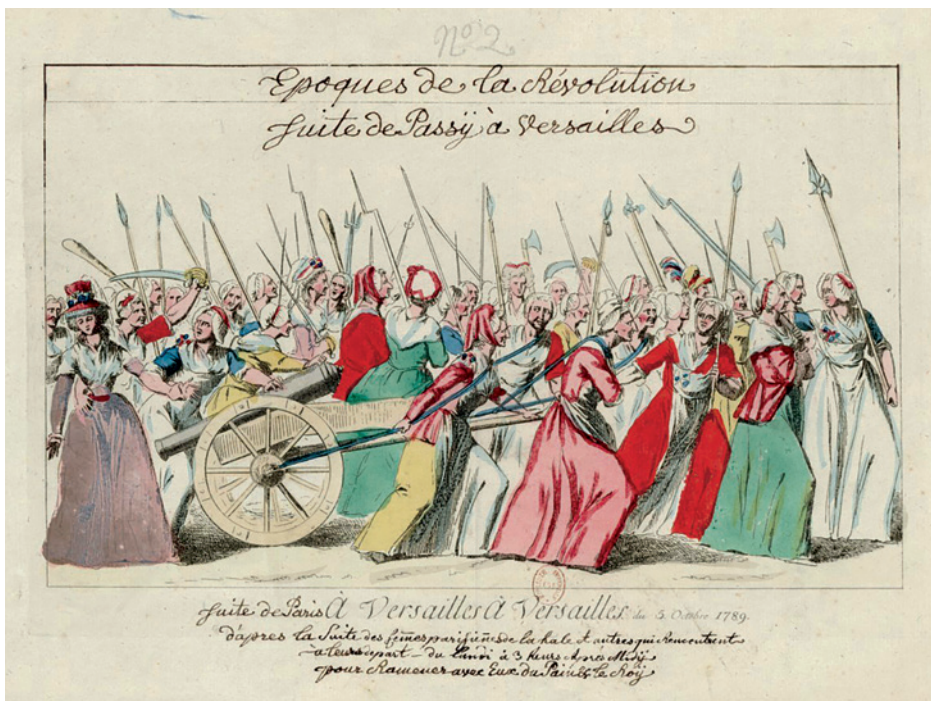 No 2
Epoques de la Révolution
Suite de Passÿ à Versailles
Suite de Paris À Versailles À Versailles du 5 Octobre 1789.
d'apres la Suite des femes parisiènes de la hale et autres qui Rencontrent
à leurs depart - du lundi à 3 heurs Après Midÿ
pour Ramener avec Eux du Pain & le Roÿ